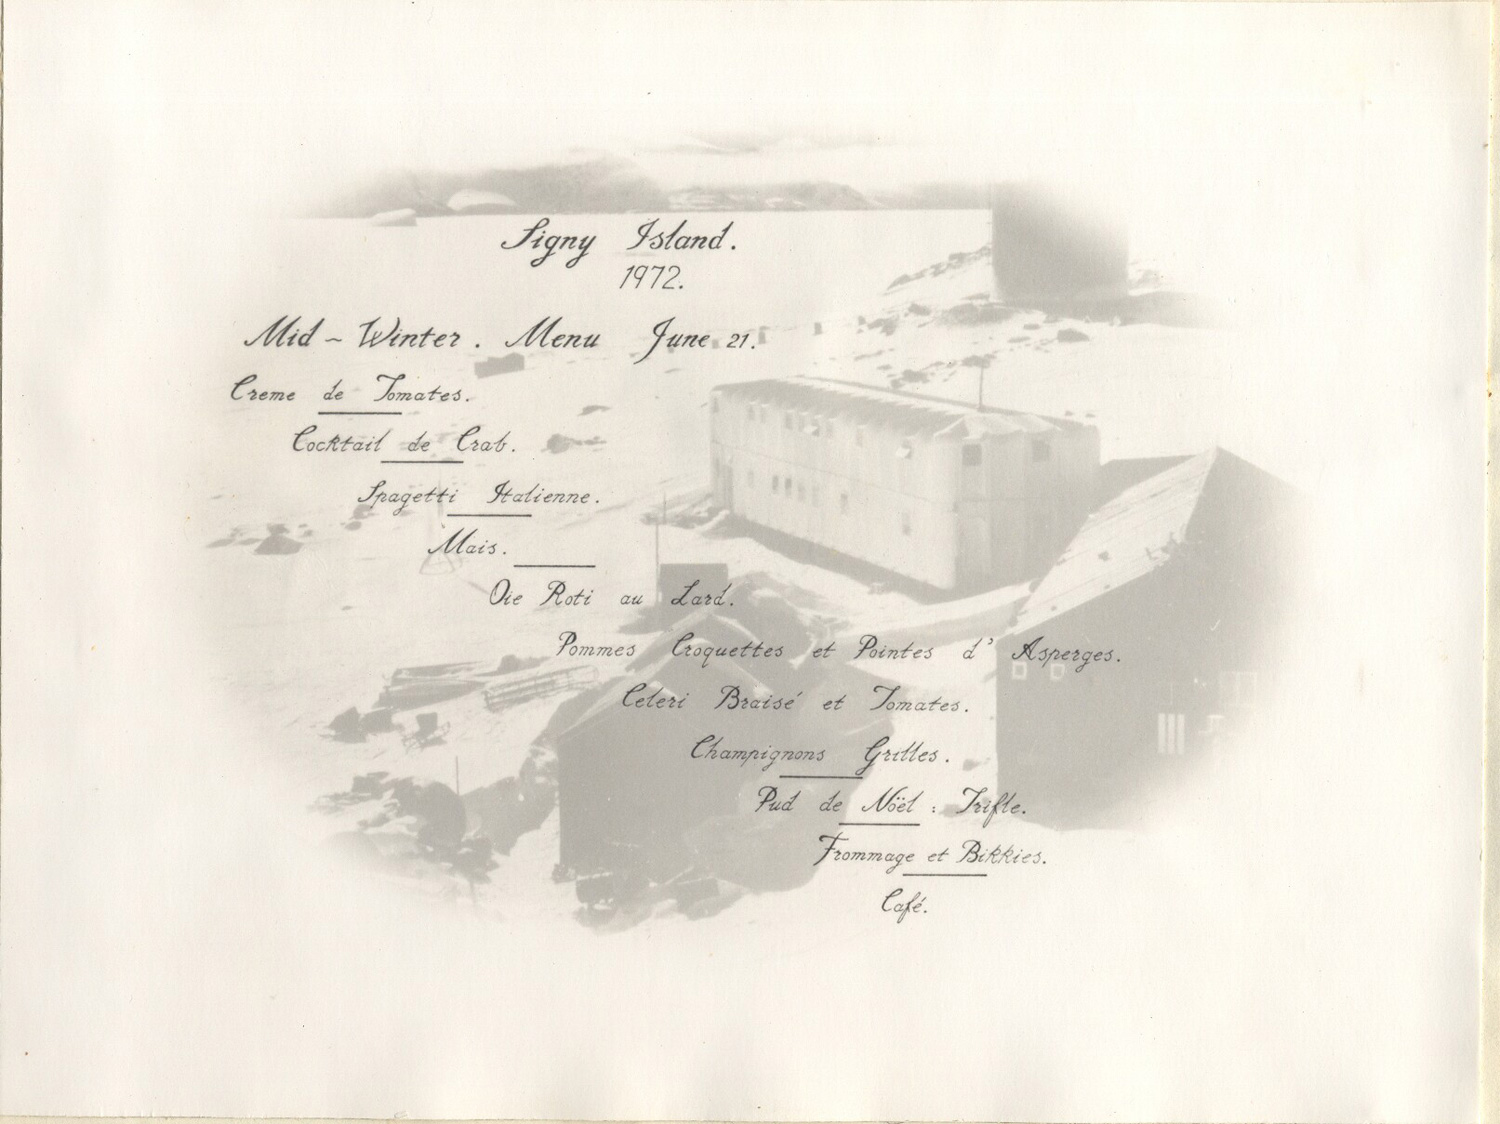 Signy Island.
1972.
Mid ~ Winter. Menu June 21.
Creme de Tomates.
Cocktail de Crab.
Spagetti Italienne.
Mais.
Oie Roti au Lard.
Pommes Croquettes et Pointes d' Asperges.
Celeri Braisé et Tomates.
Champignons Grilles.
Pud de Nöel : Trifle.
Frommage et Bikkies.
Café.